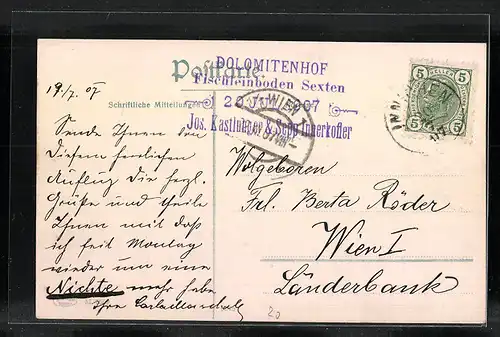 DOLOMITENHOF
Postkarte
Fischleinboden Sexten
20 07
Jos. Kastlunger & Sepp Innerkofler
19./7. 07
Schriftliche Mitteilungen
WIEN
INNICHEN
5 5
5 5
Sende Ihnen von
diesem herrlichen
Ausflug die herzl.
Grüße und theile
Ihnen mit daß
ich seit Montag
wieder um eine
Nichte mehr habe
Ihre
Wolgeboren
Frl. Berta Röder
Wien I
Länderbank
20